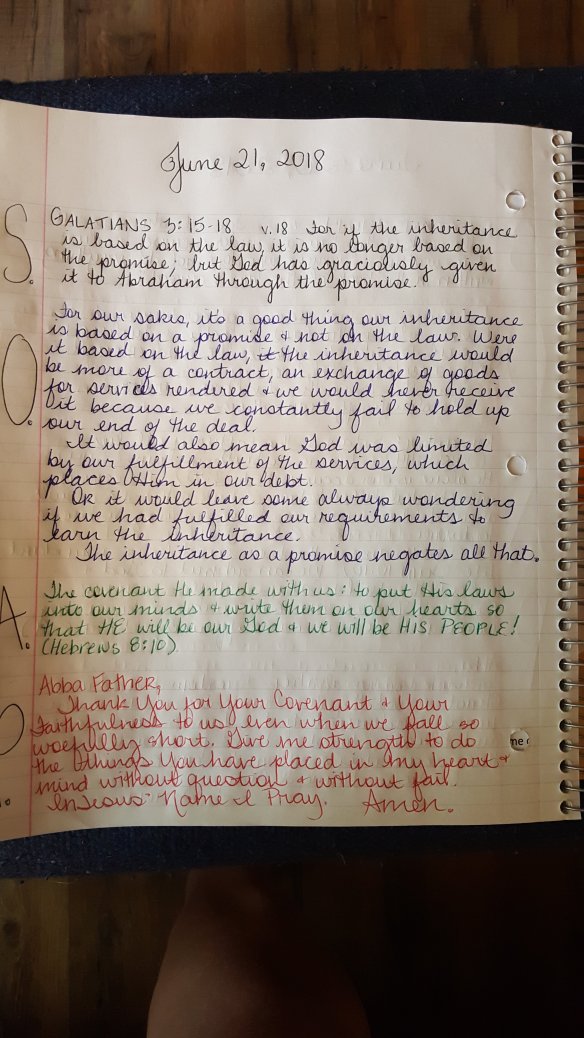 June 21, 2018
S.
GALATIANS 3:15-18 v.18 For if the inheritance
is based on the law, it is no longer based on
the promise; but God has graciously given
it to Abraham through the promise.
O.
For our sakes, it's a good thing our inheritance
is based on a promise & not on the law. Were
it based on the law, it the inheritance would
be more of a contract, an exchange of goods
for services rendered & we would never receive
it because we constantly fail to hold up
our end of the deal.
It would also mean God was limited
by our fulfillment of the services, which
places Him in our debt.
OR it would leave some always wondering
if we had fulfilled our requirements to
earn the inheritance.
The inheritance as a promise negates all that.
A.
The covenant He made with us: to put His laws
into our minds & write them on our hearts so
that HE will be our God & we will be HIS PEOPLE!
(Hebrews 8:10)
Abba Father,
Thank You for Your Covenant & Your
Faithfulness to us even when we fall so
woefully short. Give me strength to do
the things You have placed in my heart &
mind without question & without fail.
In Jesus' Name I Pray. Amen.